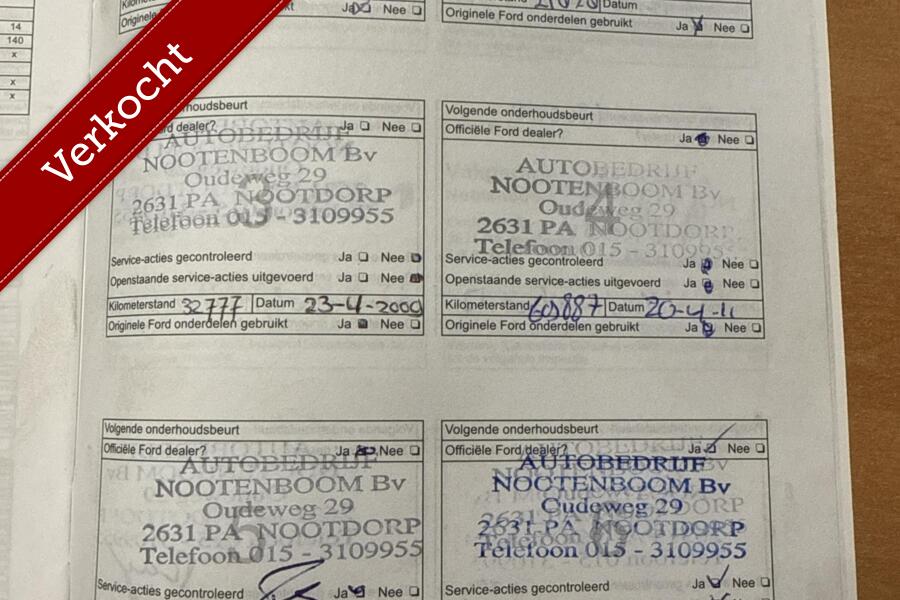 Verkocht
14
140
x
x
x
Ja Nee
Originele
Datum
Originele Ford onderdelen gebruikt Ja Nee
houdsbeurt
d dealer? Ja Nee
AUTOBEDRIJF
NOOTENBOOM Bv
Oudeweg 29
2631 PA NOOTDORP
Telefoon 015 - 3109955
3
Service-acties gecontroleerd Ja Nee
Openstaande service-acties uitgevoerd Ja Nee
Kilometerstand 32777 Datum 23-4-2009
Originele Ford onderdelen gebruikt Ja Nee
Volgende onderhoudsbeurt
Officiële Ford dealer? Ja Nee
AUTOBEDRIJF
NOOTENBOOM Bv
Oudeweg 29
2631 PA NOOTDORP
Telefoon 015 - 3109955
4
Service-acties gecontroleerd Ja Nee
Openstaande service-acties uitgevoerd Ja Nee
Kilometerstand Datum 20-4-11
Originele Ford onderdelen gebruikt Ja Nee
Volgende onderhoudsbeurt
Officiële Ford dealer? Ja Nee
AUTOBEDRIJF
NOOTENBOOM Bv
Oudeweg 29
2631 PA NOOTDORP
Telefoon 015 - 3109955
Service-acties gecontroleerd Ja Nee
Volgende onderhoudsbeurt
Officiële Ford dealer? Ja Nee
AUTOBEDRIJF
NOOTENBOOM Bv
Oudeweg 29
2631 PA NOOTDORP
Telefoon 015 - 3109955
Service-acties gecontroleerd Ja Nee